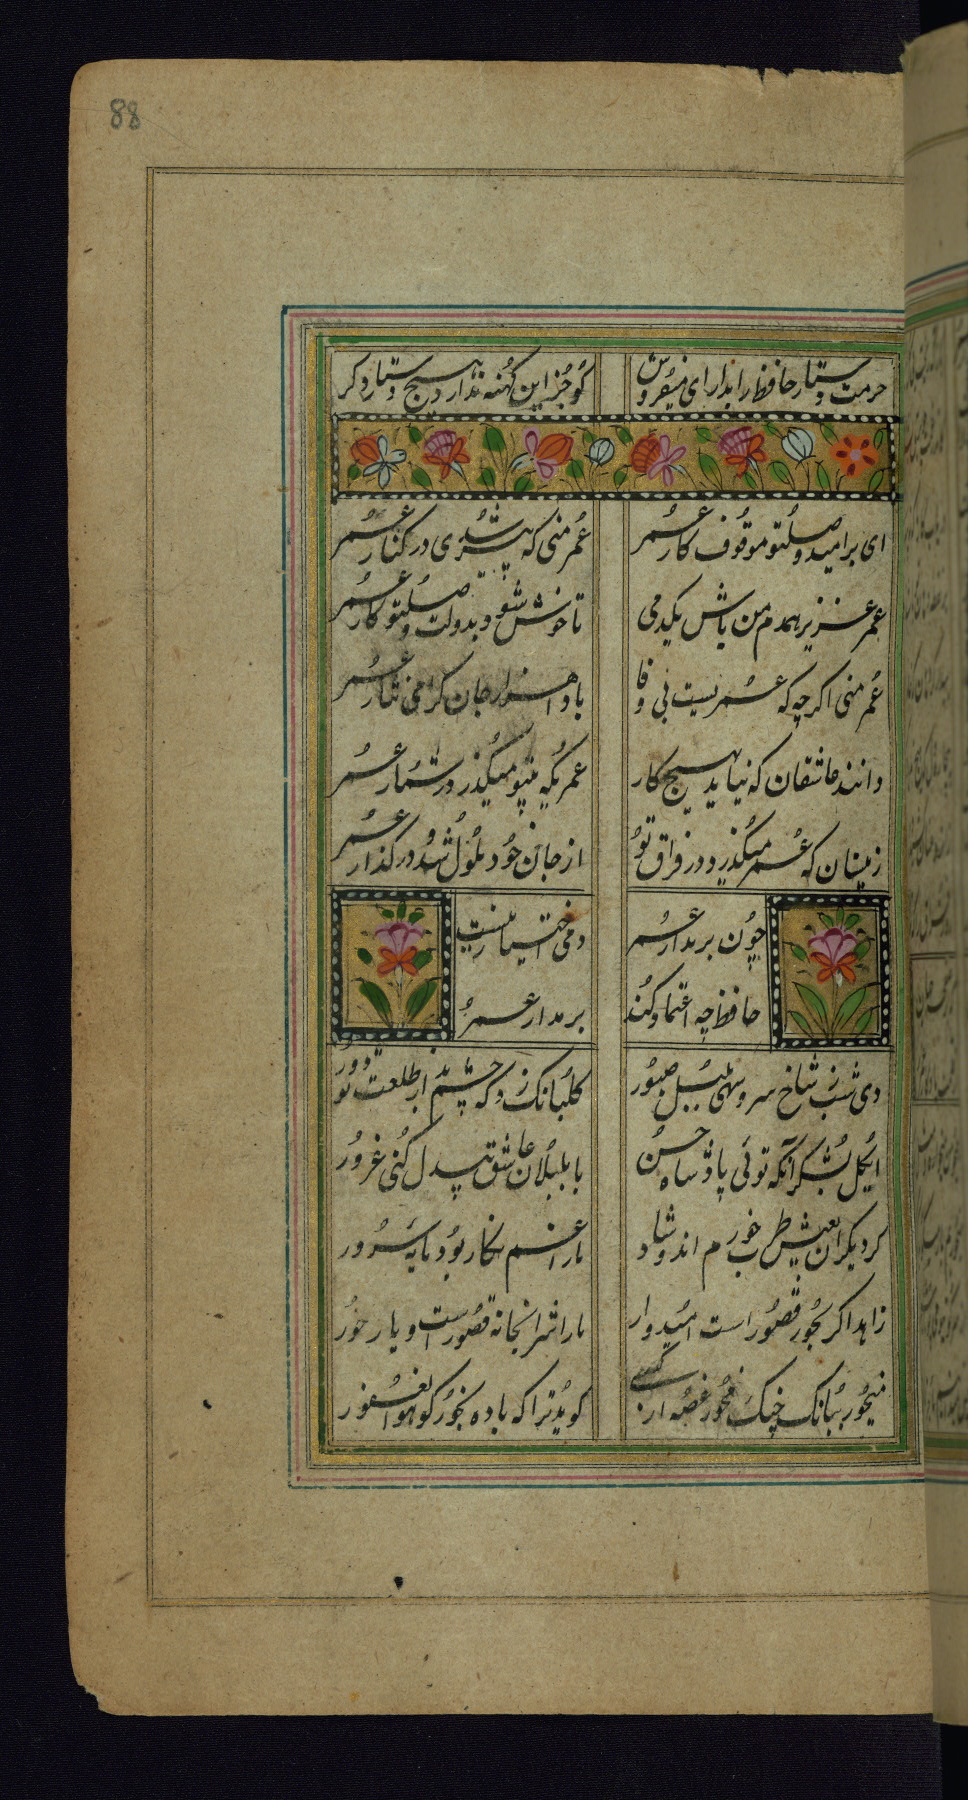 88
حرمت دستار حافظ را بدار ای میفروش
کو جز این کهنه ندارد هیچ دستار دکر
ای بر امید وصلتو موقوف کار عمر
عمر منی که پیشتری در کنار عمر
عمر عزیز همدم من باش یکدمی
تا خوش شود بدولت وصلتو کار عمر
عمر منی اکرچه که عمریست بی وفا
بادا هزار جان کرامی نثار عمر
دانند عاشقان که نیاید بهیچ کار
عمریکه بیتو میکذرد در شمار عمر
زینسان که عمر میکذرد در فراق تو
از جان خود ملول شدو در کذار عمر
چون بر مدار عمر
دمی اختیار نیست
حافظ چه اعتماد کند
بر مدار عمر
دی شب ز شاخ سرو سهی بلبل صبور
کلبانک زد که چشم بد از طلعت تو دور
ایکل بشکر آنکه توئی پادشاه حسن
با بلبلان عاشق بیدل مکن غرور
کر دیکران بعیش و طرب خورم اند و شاد
ما را غم نکار بود مایه سرور
زاهد اکر بحور و قصور است امیدوار
ما را شرابخانه قصورست و یار حور
میخور ببانک چنک و مخور غصه ار کسی
کوید ترا که باده مخور کو هو الغفور